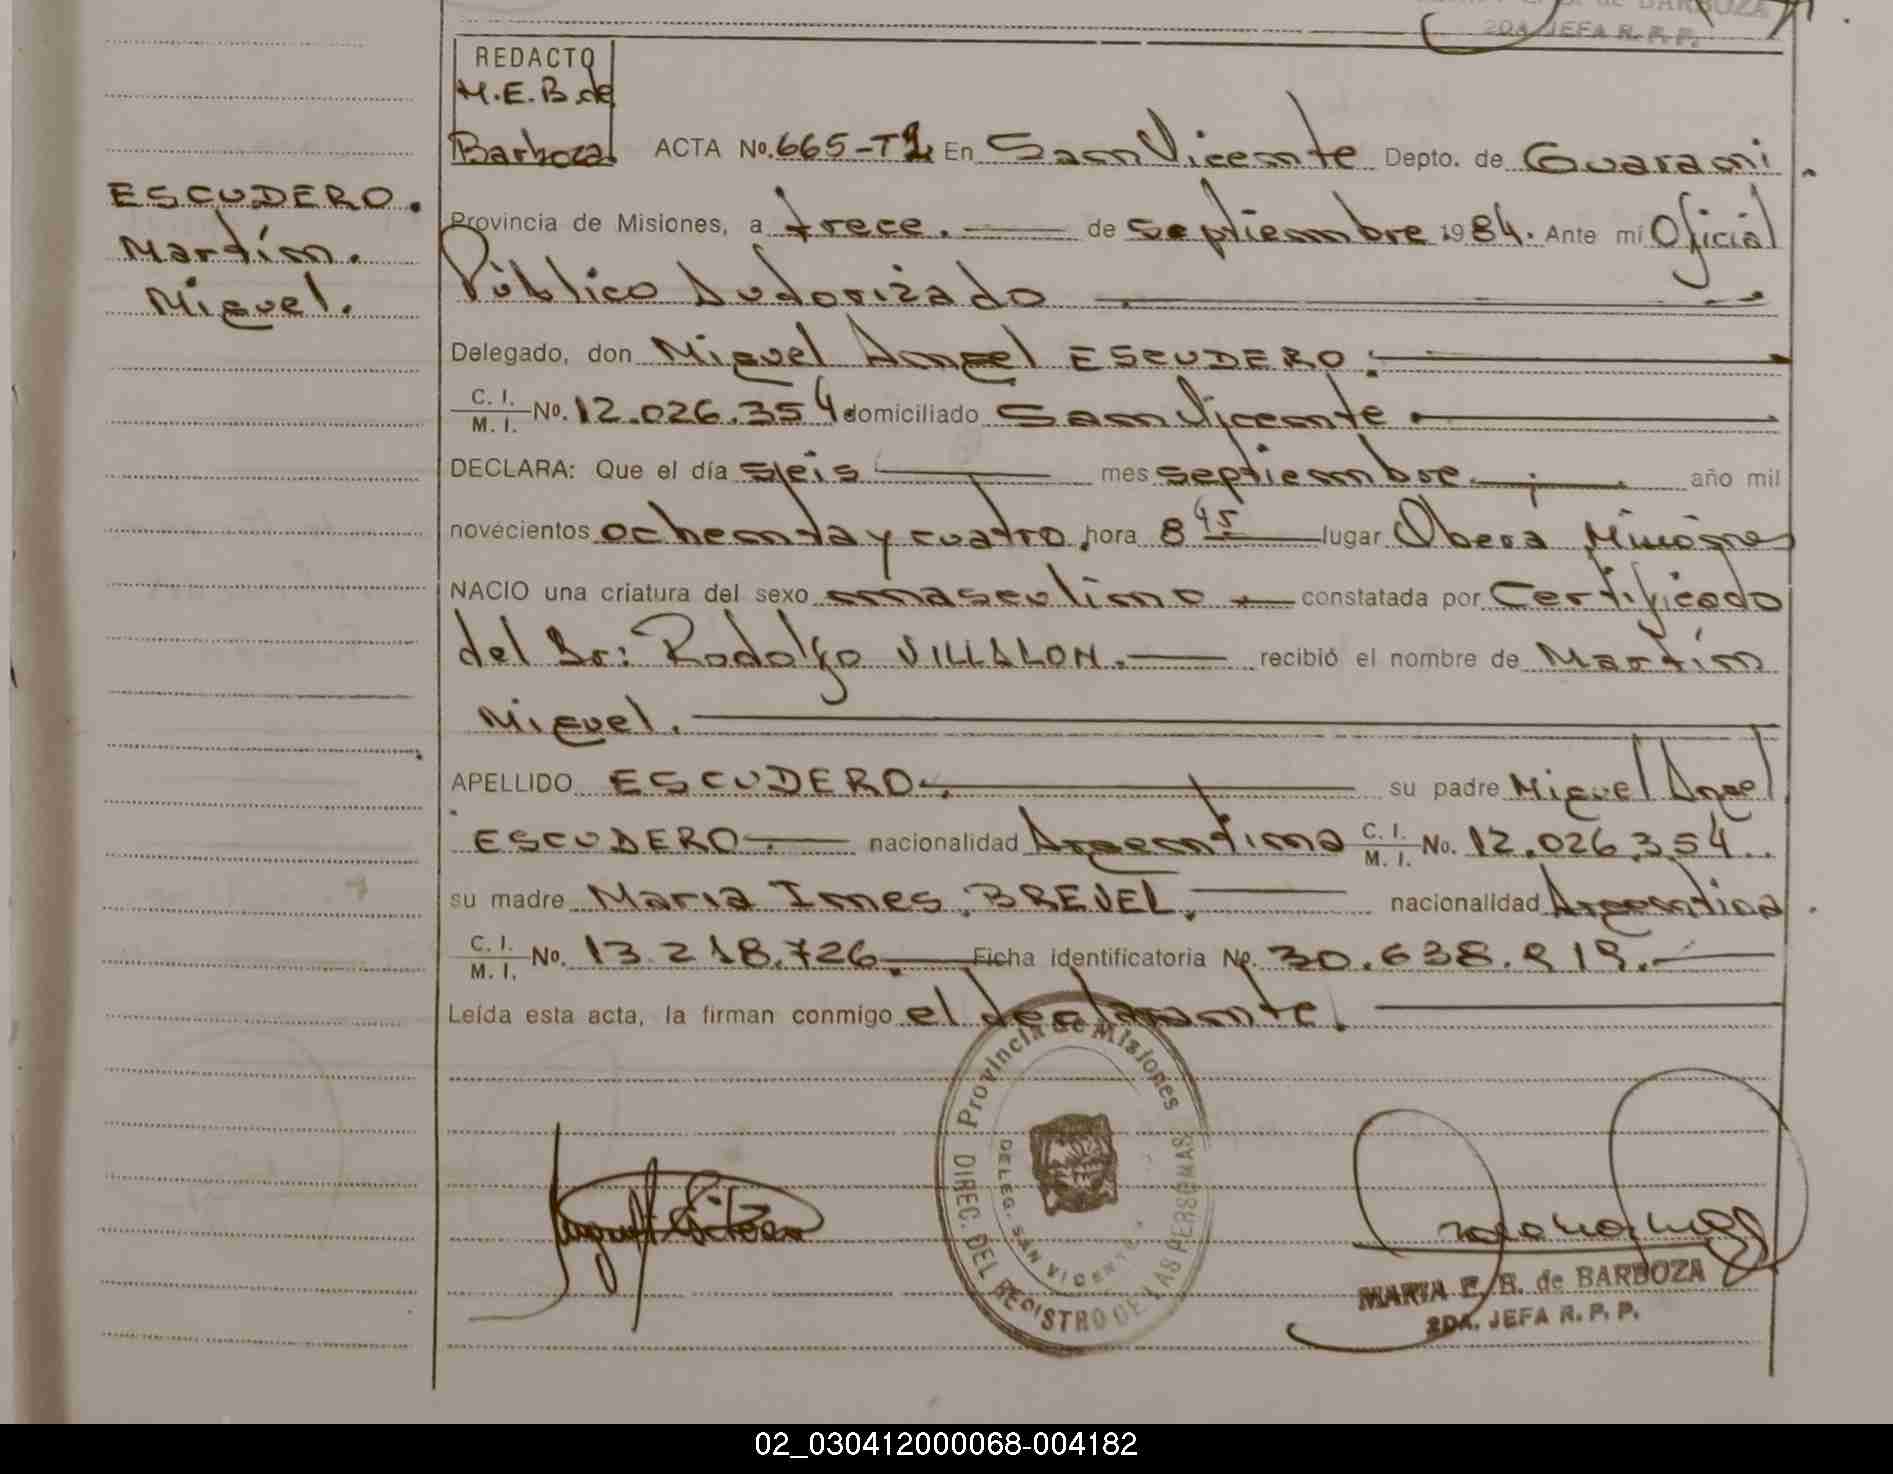 DE BARBOZA
2DA. JEFA R. P. P.
REDACTO
M.E.B. de
Barboza
ACTA No. 665-T2 En San Vicente Depto. de Guarani
ESCUDERO.
Martín.
Miguel.
Provincia de Misiones, a trece. de septiembre 1984. Ante mí Oficial
Público Autorizado
Delegado, don Miguel Angel ESCUDERO.
C. I. / M. I. No. 12.026.354 domiciliado San Vicente
DECLARA: Que el día seis mes septiembre. año mil
novecientos ochenta y cuatro, hora 8 45 lugar Oberá Misiones
NACIO una criatura del sexo masculino constatada por Certificado
del Dr: Rodolfo VILLALON. recibió el nombre de Martín
Miguel.
APELLIDO ESCUDERO. su padre Miguel Angel
ESCUDERO nacionalidad Argentina C. I. / M. I. No. 12.026.354.
su madre Maria Ines BREUEL. nacionalidad Argentina
C. I. / M. I. No. 13.218.726. Ficha identificatoria No. 30.638.919.
Leída esta acta, la firman conmigo el declarante.
Provincia de Misiones
DIREC. DEL REGISTRO DE LAS PERSONAS
DELEG. SAN VICENTE
MARIA E. B. de BARBOZA
2DA. JEFA R. P. P.
02_030412000068-004182